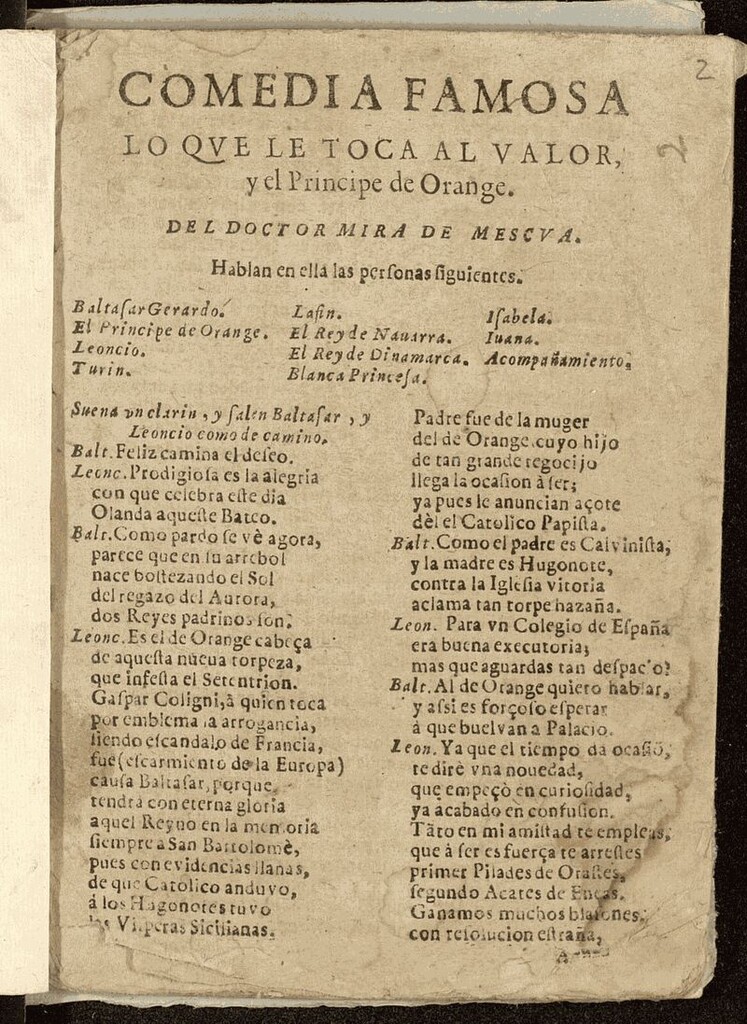 2
COMEDIA FAMOSA
LO QVE LE TOCA AL VALOR,
y el Principe de Orange.
DEL DOCTOR MIRA DE MESCVA.
Hablan en ella las perſonas ſiguientes.
Baltaſar Gerardo.
El Principe de Orange.
Leoncio.
Turin.
Laſin.
El Rey de Nauarra.
El Rey de Dinamarca.
Blanca Princeſa.
Iſabela.
Iuana.
Acompañamiento.
Suena vn clarin, y ſalen Baltaſar, y
Leoncio como de camino.
Balt. Feliz camina el deſeo.
Leonc. Prodigioſa es la alegria
con que celebra eſte dia
Olanda aqueſte Bateo.
Balt. Como pardo ſe vè agora,
parece que en ſu arrebol
nace boſtezando el Sol
del regazo del Aurora,
dos Reyes padrinos ſon.
Leonc. Es el de Orange cabeça
de aqueſta nueua torpeza,
que infeſta el Setentrion.
Gaſpar Coligni, à quien toca
por emblema la arrogancia,
ſiendo eſcandalo de Francia,
fue (eſcarmiento de la Europa)
cauſa Baltaſar, porque
tendrà con eterna gloria
aquel Reyno en la memoria
ſiempre a San Bartolomè,
pues con evidencias llanas,
de que Catolico anduvo,
à los Hugonotes tuvo
las Viſperas Sicilianas.
Padre fue de la muger
del de Orange, cuyo hijo
de tan grande regocijo
llega la ocaſion à ſer;
ya pues le anuncian açote
dèl el Catolico Papiſta.
Balt. Como el padre es Calviniſta,
y la madre es Hugonote,
contra la Igleſia vitoria
aclama tan torpe hazaña.
Leon. Para vn Colegio de Eſpaña
era buena executoria;
mas que aguardas tan deſpacio?
Balt. Al de Orange quiero hablar,
y aſsi es forçoſo eſperar
à que buelvan a Palacio.
Leon. Ya que el tiempo da ocaſiõ,
te dirè vna nouedad,
que empeçò en curioſidad,
ya acabado en confuſion.
Tãto en mi amiſtad te empleas,
que à ſer es fuerça te arreſtes
primer Pilades de Oraſtes,
ſegundo Acates de Eneas.
Ganamos muchos blaſones,
con reſolucion eſtraña,